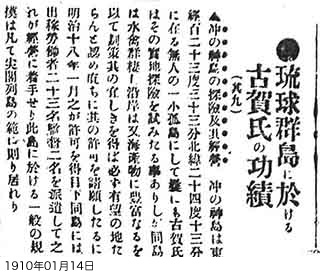 ●琉球群島に於ける
古賀氏の功績
（其九）
▲沖の神島の探險及其經營　沖の神島は東
經百二十三度三十三分北緯二十四度十三分
に在る無人の一小孤島にして曩にも古賀氏
は之の實地探險を試みたる事ありしが同島
は水禽群棲し沿岸は又海産物に豊富なるを
以て制度其の宜しきを得ば必ず有望の地た
らんと認め直ちに其の許可を請願したるに
明治十八年一月之が許可を得目下同島には
出稼勞働者二十三名監督二名を派遣して之
れが經營に着手せり此島に於ける一般の規
模は凡て尖閣列島の範に則り居れり
1910年01月14日